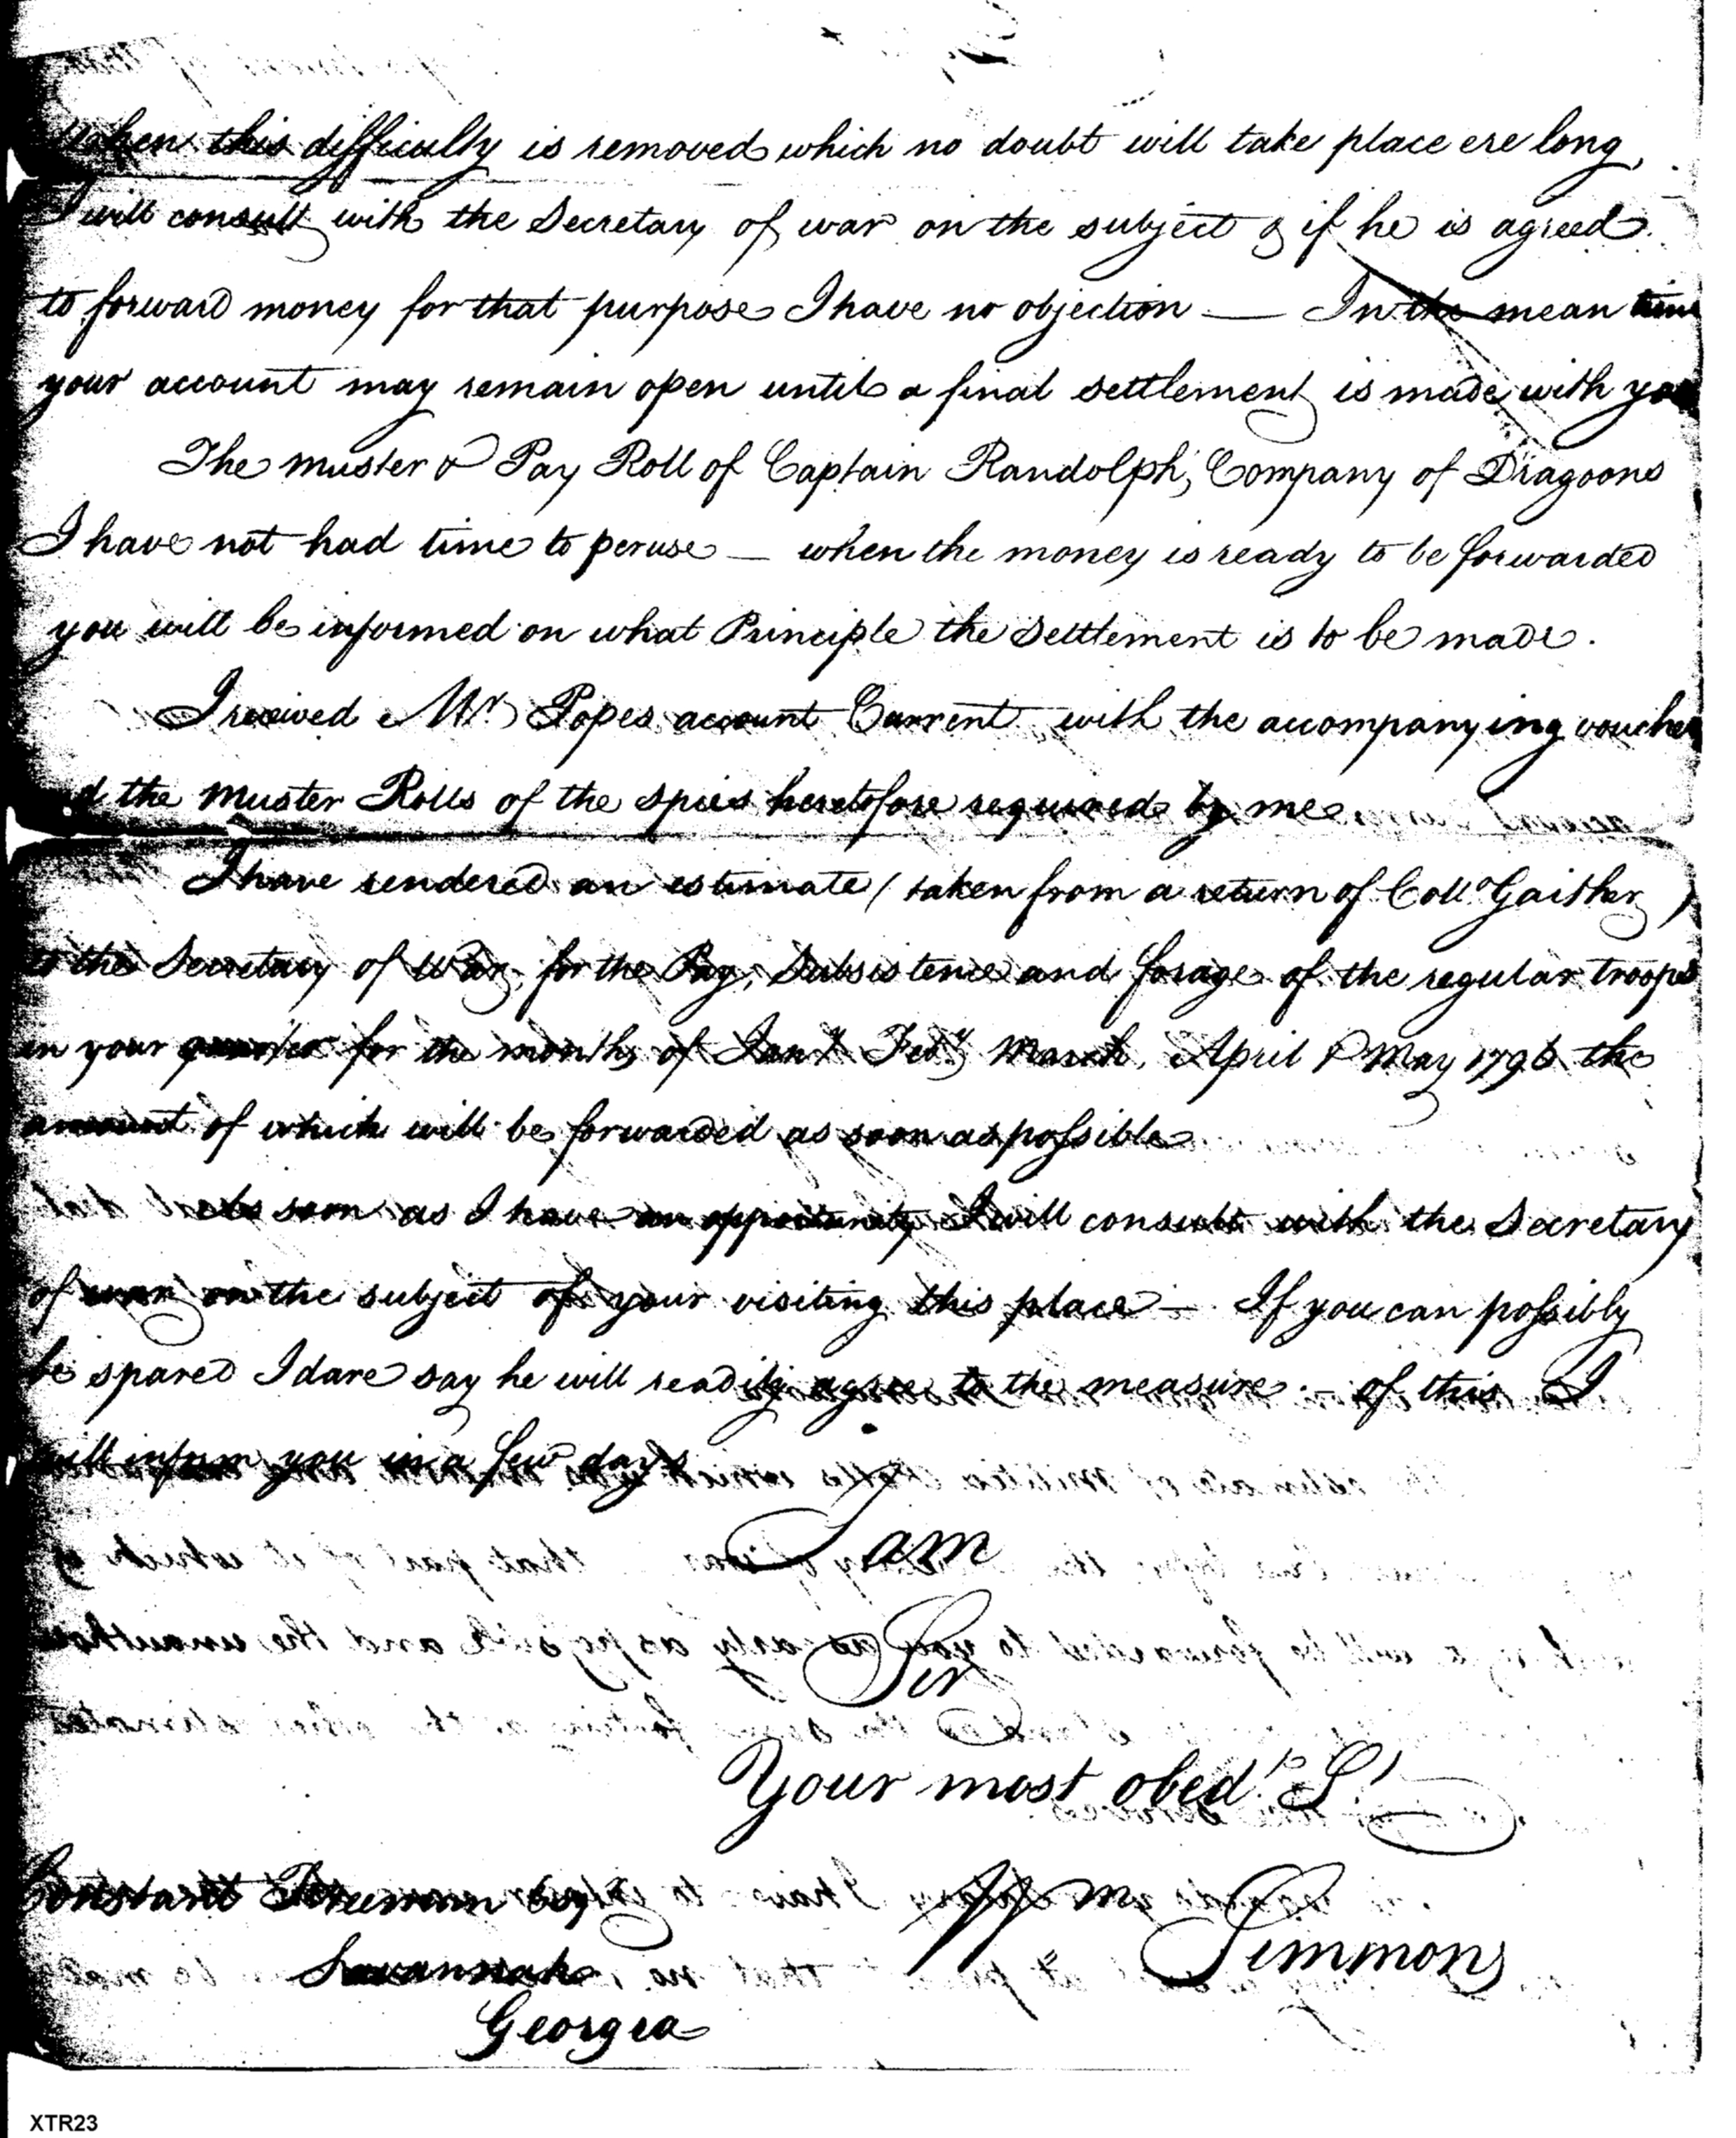 When this difficulty is removed which no doubt will take place ere long,
I will consult with the Secretary of war on the subject & if he is agreed
to forward money for that purpose I have no objection — In the mean time
your account may remain open until a final settlement is made with you
The muster & Pay Roll of Captain Randolph's Company of Dragoons
I have not had time to peruse — when the money is ready to be forwarded
you will be informed on what Principle the Settlement is to be made.
I received Mr. Popes account Current with the accompanying voucher
d the Muster Rolls of the spies heretofore required by me
I have rendered an estimate (taken from a return of Coll. Gaither)
to the Secretary of War, for the Pay, Subsistence and forage of the regular troops
in your quarter for the months of Jany. Feby. March, April & May 1796 the
amount of which will be forwarded as soon as possible
As soon as I have an opportunity I will consult with the Secretary
of war on the subject of your visiting this place — If you can possibly
be spared I dare say he will readily agree to the measure. — of this I
will inform you in a few days
I am
Sir
Your most obedt. St.
Constant Freeman Esqr
Wm Simmons
Savannah
Georgia
XTR23